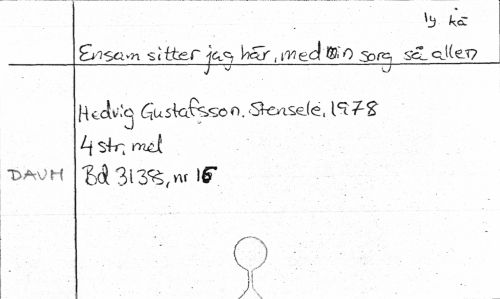 ly kä
Ensam sitter jag här, med min sorg så allen
Hedvig Gustafsson. Stensele, 1978
4 str, mel
DAUM Bd 3138, nr 16